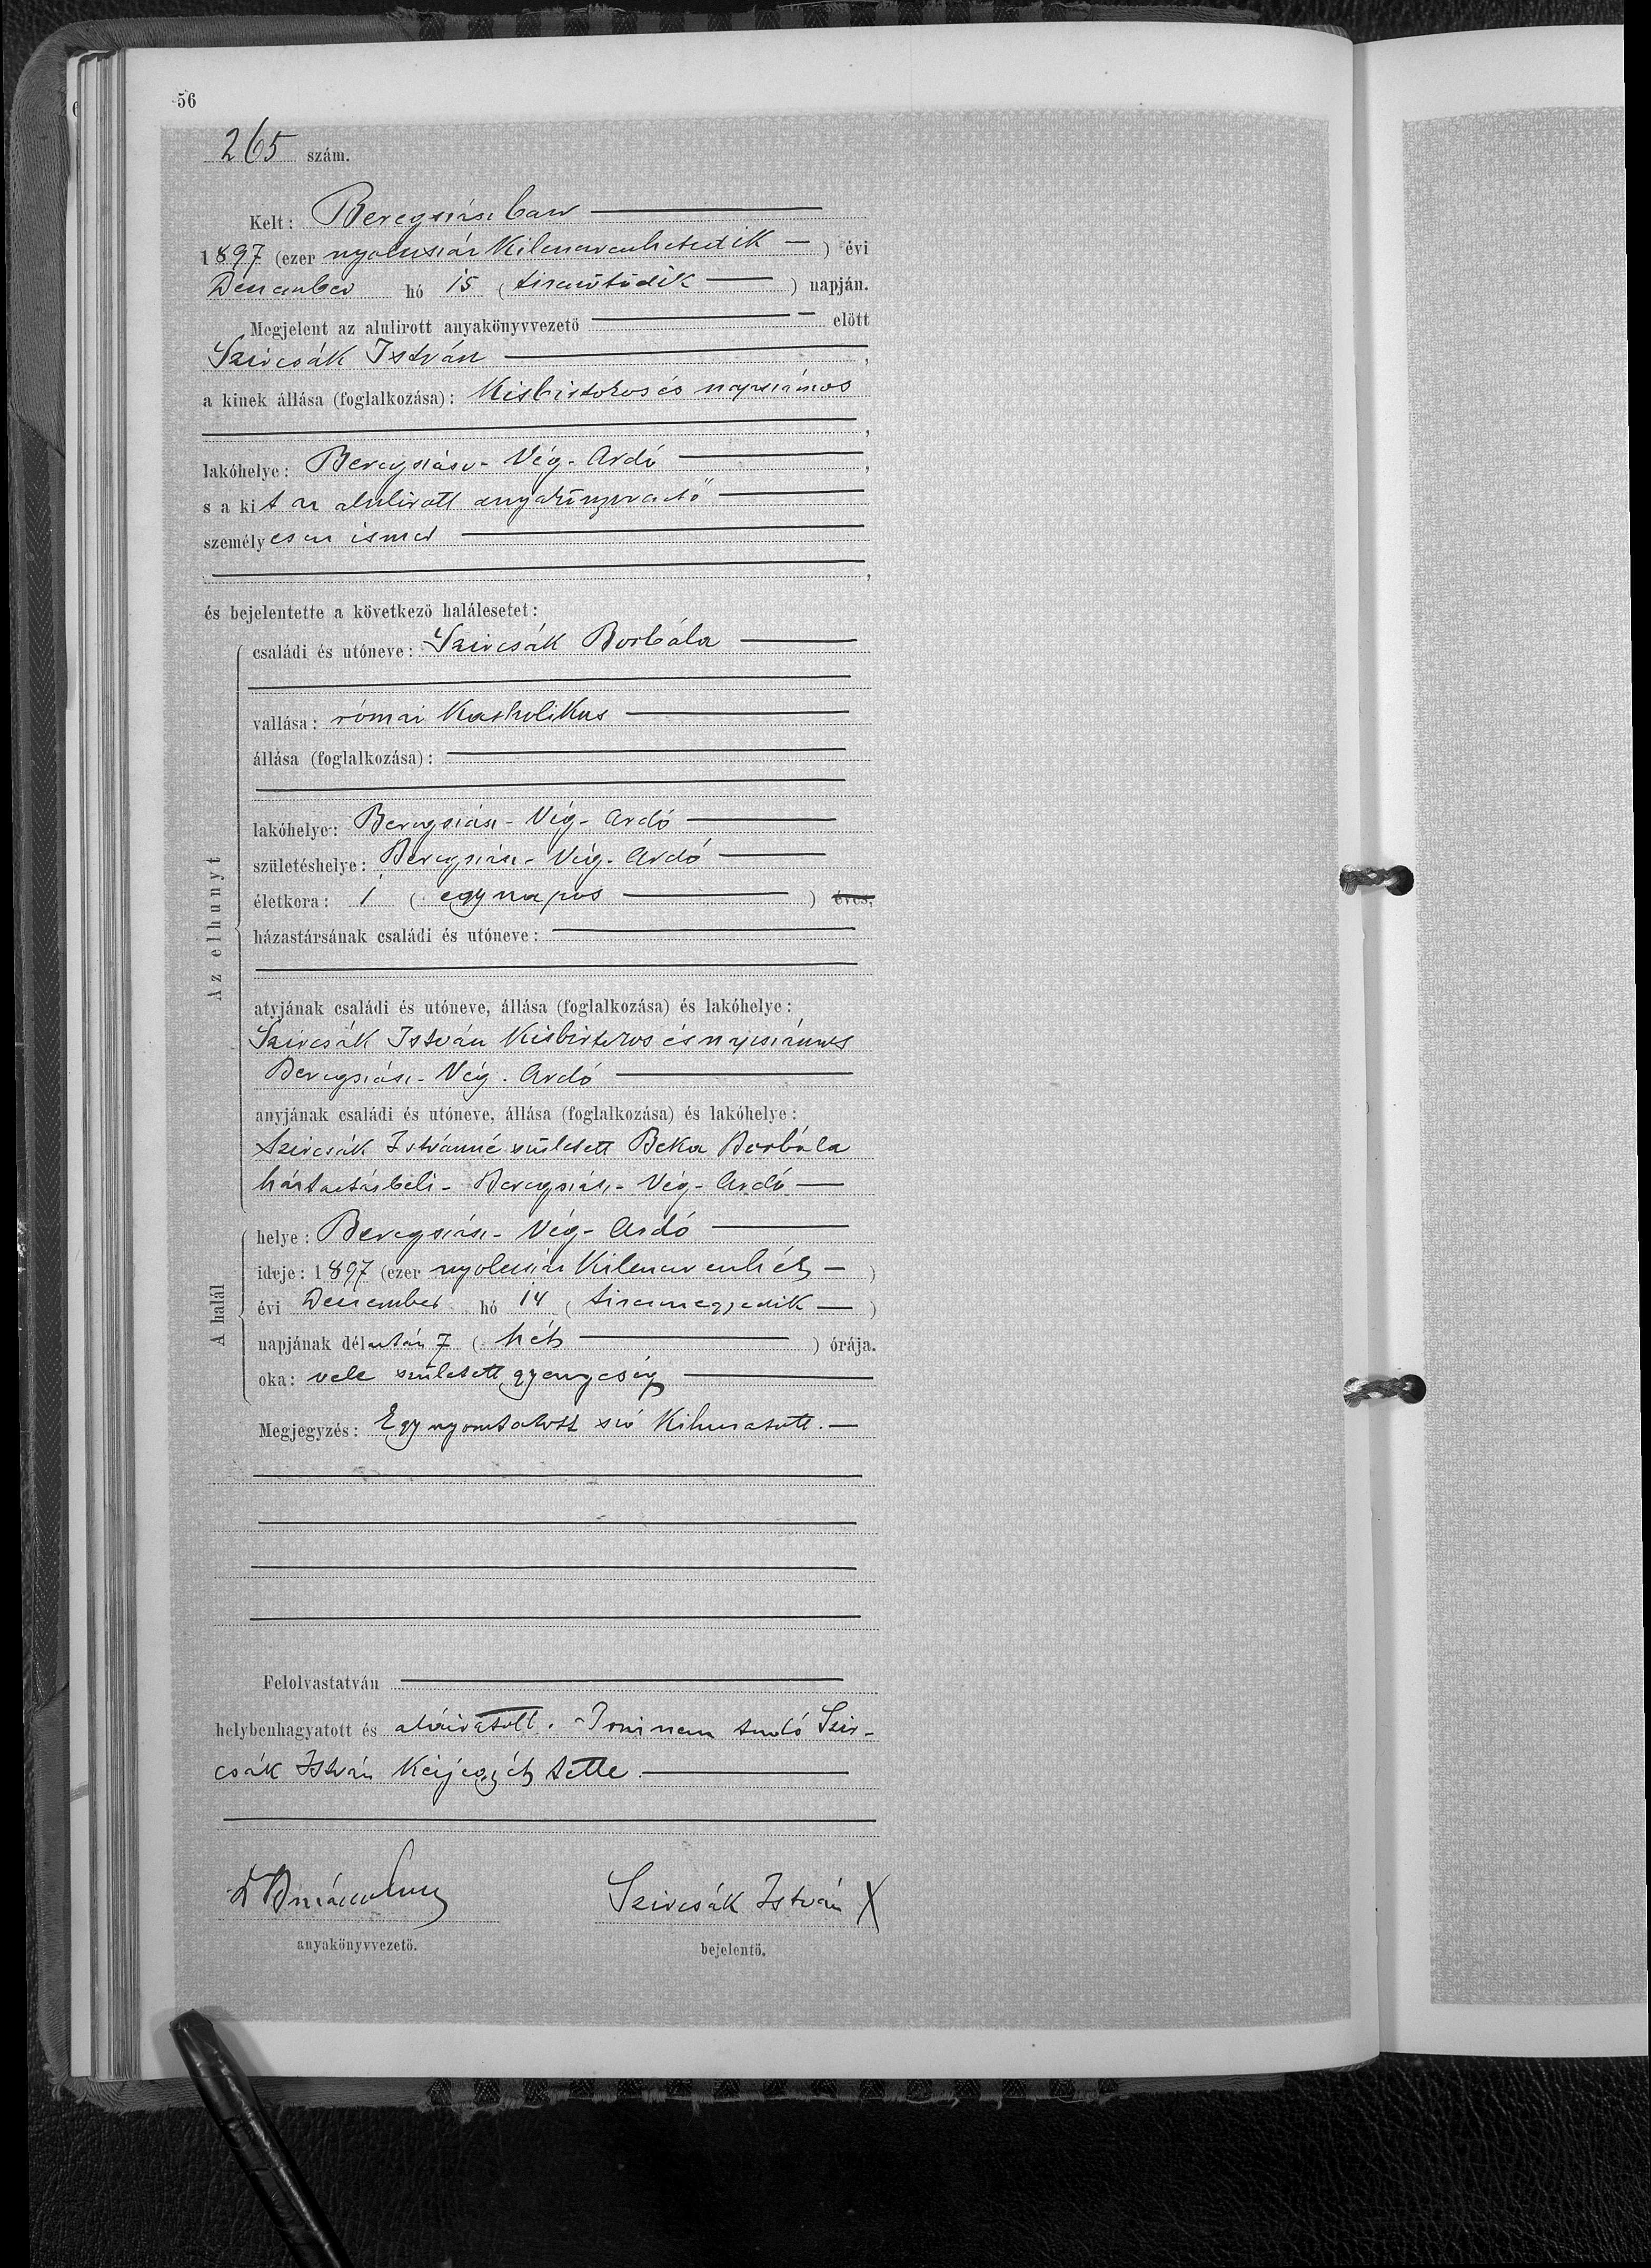 56
265 szám.
Kelt: Beregszászban
1897 (ezer nyolcszáz kilencvenhetedik) évi
December hó 15 (tizenötödik) napján.
Megjelent az alulirott anyakönyvvezető előtt
Szivcsák István,
a kinek állása (foglalkozása): Kisbirtokos és napszámos
,
lakóhelye: Beregszász-Vég-Ardó,
s a kit az alulirott anyakönyvvezető
személyesen ismer
,
és bejelentette a következő halálesetet:
Az elhunyt
családi és utóneve: Szivcsák Borbála
vallása: római Katholikus
állása (foglalkozása):
lakóhelye: Beregszász-Vég-Ardó
születéshelye: Beregszász-Vég-Ardó
életkora: 1 (egy napos) éves,
házastársának családi és utóneve:
atyjának családi és utóneve, állása (foglalkozása) és lakóhelye:
Szivcsák István Kisbirtokos és napszámos
Beregszász-Vég-Ardó
anyjának családi és utóneve, állása (foglalkozása) és lakóhelye:
Szivcsák Istvánné született Beka Borbála
háztartásbeli - Beregszász-Vég-Ardó
A halál
helye: Beregszász-Vég-Ardó
ideje: 1897 (ezer nyolcszáz kilencvenhét)
évi December hó 14 (tizennegyedik)
napjának délután 7 (hét) órája.
oka: vele született gyengeség
Megjegyzés: Egy nyomtatott szó kihuzatott.
Felolvastatván
helybenhagyatott és aláiratott. Irni nem tudó Sziv-
csák István kézjegyét tette.
Szivcsák István X
anyakönyvvezető. bejelentő.